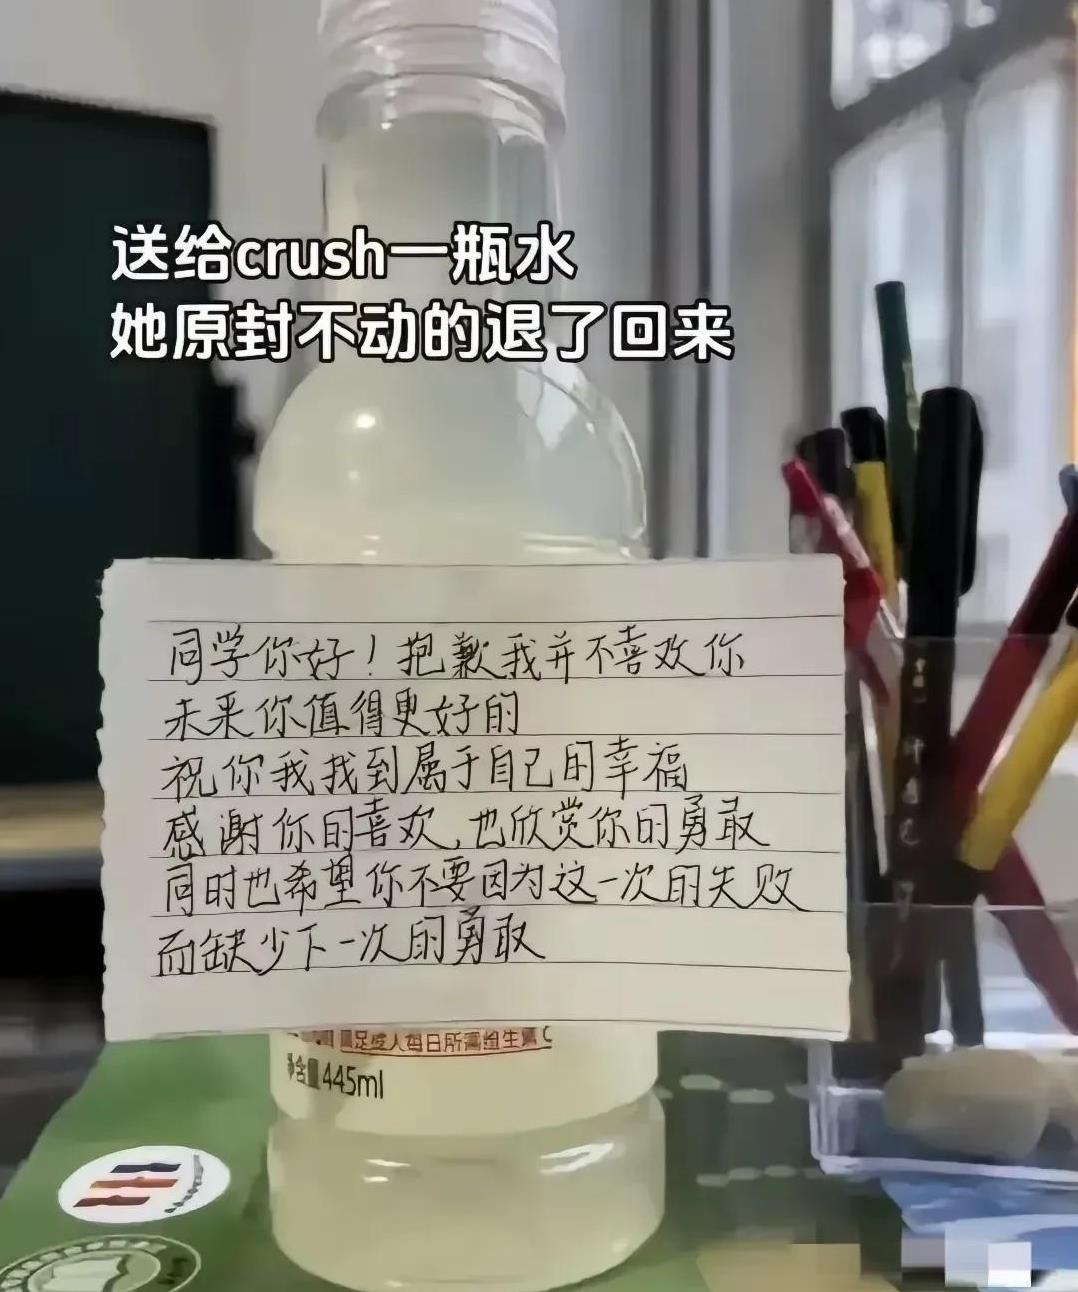 送给crush一瓶水
她原封不动的退了回来
同学你好！抱歉我并不喜欢你
未来你值得更好的
祝你我找到属于自己的幸福
感谢你的喜欢,也欣赏你的勇敢
同时也希望你不要因为这一次的失败
而缺少下一次的勇敢
满足成人每日所需维生素C
净含量445ml